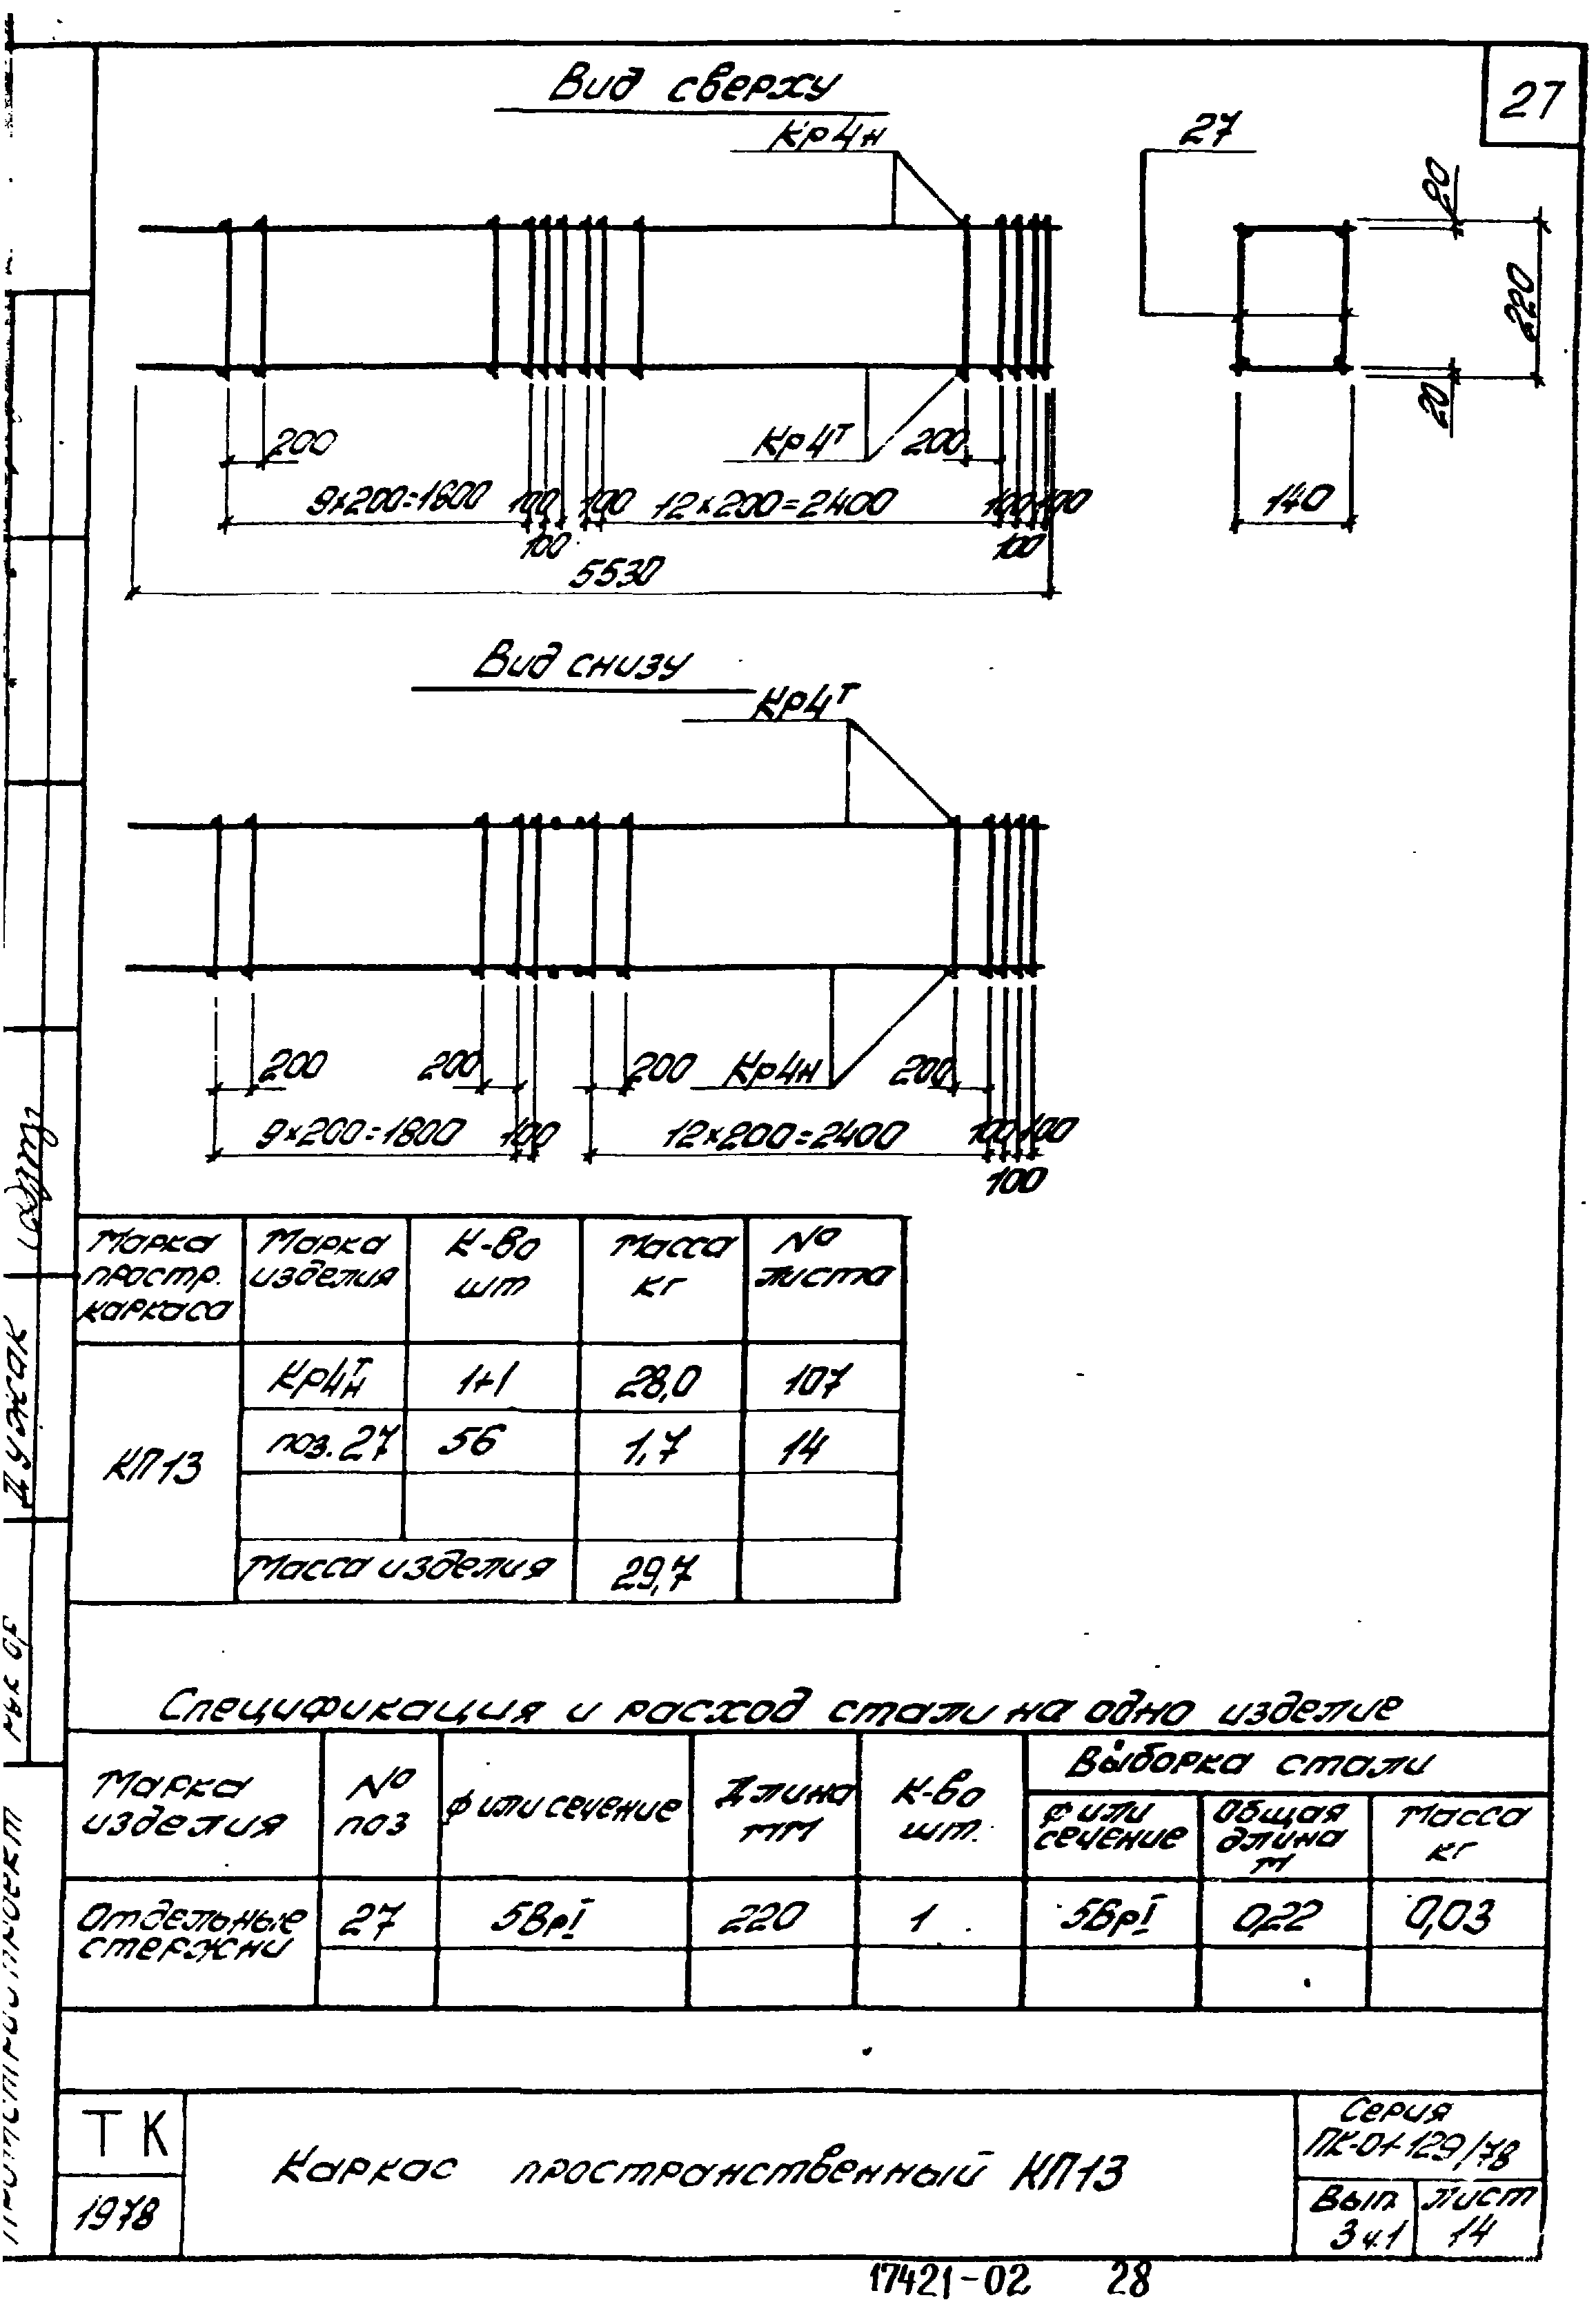 27
Вид сверху
Кр4н
27
20
220
20
140
200
Кр4т
200
9×200=1800
100
100
12×200=2400
100
100
100
100
5530
Вид снизу
Кр4т
200
200
200
Кр4н
200
9×200=1800
100
12×200=2400
100
100
100
Марка простр. каркаса
Марка изделия
К-во шт
Масса кг
№ листа
КП13
Кр4тн
1+1
28,0
107
поз. 27
56
1,7
14
Масса изделия
29,7
Спецификация и расход стали на одно изделие
Марка изделия
№ поз
ф или сечение
Длина мм
К-во шт.
Выборка стали
ф или сечение
Общая длина м
Масса кг
Отдельные стержни
27
5ВрI
220
1
5ВрI
0,22
0,03
ТК
1978
Каркас пространственный КП13
Серия
ПК-01-129/78
Вып
3 ч.1
Лист
14
17421-02
28
Дужак